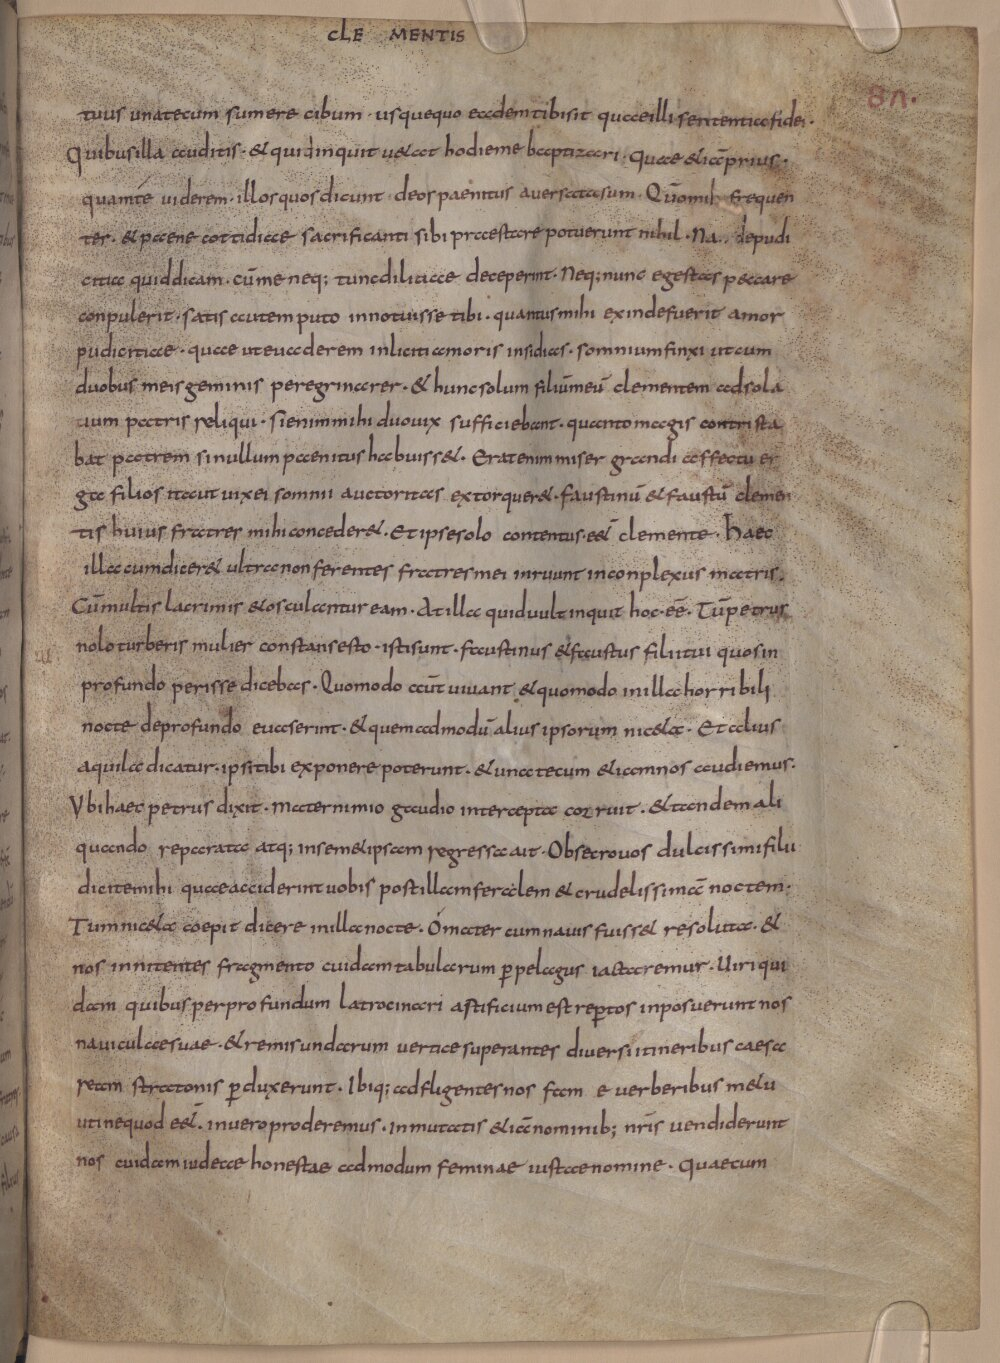 CLEMENTIS
87.
tuus una tecum sumere cibum · usquequo eadem tibi sit quae illi sententia fidei ·
Quibus illa auditis · & quid inquit u&at hodie me baptizari · Quae & iā prius ·
quam te uiderem · illos quos dicunt · deos paenitus auersata sum · Qūo mihi frequen
ter · & paene cottidiae sacrificanti sibi praestare potuerunt nihil · Na.. de pudi
citia quid dicam · cū me neq; tunc diliciae deceperint · Neq; nunc egestas peccare
conpulerit · satis autem puto innotuisse tibi · quantus mihi exinde fuerit amor
pudicitiae · quae ut euaderem inliciti amoris insidias · somnium finxi ut cum
duobus meis geminis peregrinarer · & hunc solum filiū meū clementem ad sola
tium patris reliqui · si enim mihi duo uix sufficiebant · quanto magis contrista
bat patrem si nullum paenitus habuiss& · Erat enim miser grandi affectu er
ga filios ita ut uix ei somnii auctoritas extorquer& · faustinū & faustū clemen
tis huius fratres mihi conceder& · Et ipse solo contentus · eē& clemente · Haec
illa cum dicer& ultra non ferentes fratres mei inruunt in conplexus matris ·
Cū multis lacrimis & osculantur eam · At illa quid uult inquit hoc · eē · Tū petrus
nolo turberis mulier constans esto · isti sunt · faustinus & faustus filii tui quos in
profundo perisse dicebas · Quomodo aūt uiuant & quomodo in illa horribili
nocte de profundo euaserint · & quemadmodū alius ipsorum nic&a · Et alius
aquila dicatur · ipsi tibi exponere poterunt · & una tecum & iam nos audiemus ·
Vbi haec petrus dixit · mater nimio gaudio intercepta corruit · & tandem ali
quando reparata atq; in sem&ipsam regressa ait · Obsecro uos dulcissimi filii
dicite mihi quae acciderint uobis post illam feralem & crudelissimā noctem ·
Tum nic&a coepit dicere in illa nocte · O mater cum nauis fuiss& resoluta · &
nos innitentes fragmento cuidam tabularum p pelagus iactaremur · Uiri qui
dam quibus per profundum latrocinari artificium est reptos inposuerunt nos
nauiculae suae · & remis undarum uertice superantes diuersi itineribus caesa
ream stratonis pduxerunt · Ibiq; adfligentes nos fam e uerberibus m&u
uti ne quod eē& · in uero proderemus · in mutatis & iā nominib; nrīs uendiderunt
nos cuidam iudeae honestae admodum feminae iustae nomine · Quae cum